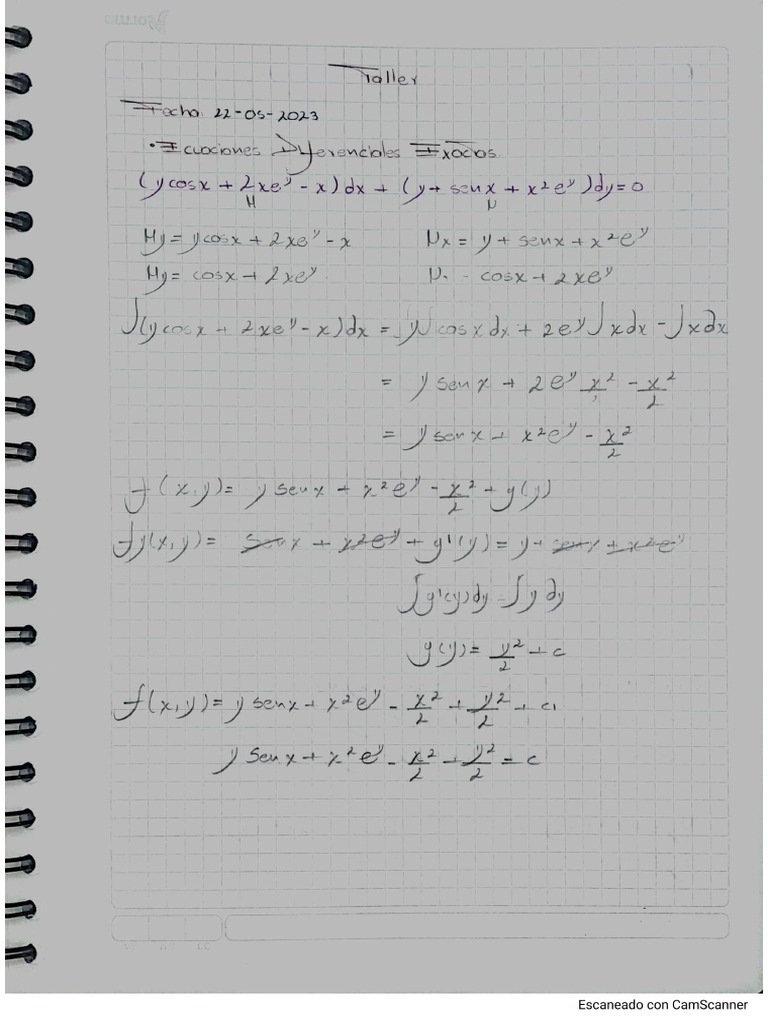 Taller
Fecha: 22-05-2023
• Ecuaciones Diferenciales Exactas.
(y cosx + 2xe^y - x)dx + (y + senx + x²e^y)dy = 0
M N
My = y cosx + 2xe^y - x Nx = y + senx + x²e^y
My = cosx + 2xe^y Nx = cosx + 2xe^y
∫(y cosx + 2xe^y - x)dx = y∫cosx dx + 2e^y∫x dx - ∫x dx
= y senx + 2e^y x²/2 - x²/2
= y senx + x²e^y - x²/2
f(x,y) = y senx + x²e^y - x²/2 + g(y)
fy(x,y) = senx + x²e^y + g'(y) = y + senx + x²e^y
∫g'(y)dy = ∫y dy
g(y) = y²/2 + c
f(x,y) = y senx + x²e^y - x²/2 + y²/2 + c₁
y senx + x²e^y - x²/2 + y²/2 = c
Escaneado con CamScanner